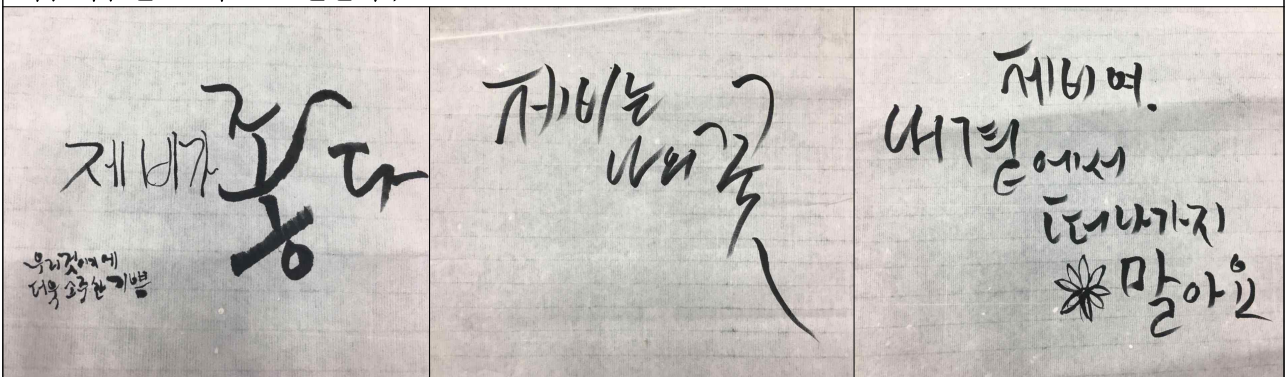 제비가 좋다
우리것이기에
더욱 소중한 기쁨
제비는
나의 꽃
제비여.
내 곁에서
떠나가지
말아요